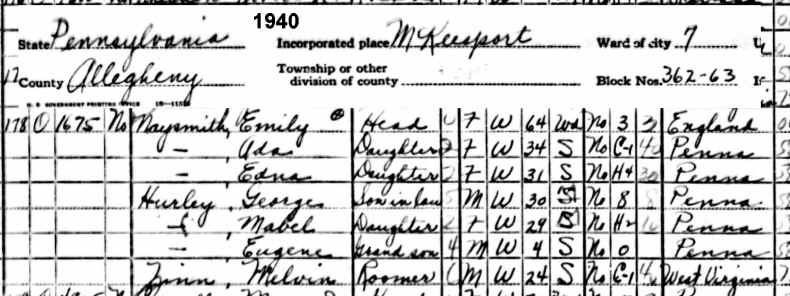 1940
State Pennsylvania Incorporated place McKeesport Ward of city 7
County Allegheny Township or other division of county Block Nos. 362-63
178 O 1675 No Naysmith, Emily Head F W 64 Wd No 3 England
— , Ada Daughter F W 34 S No C-1 Penna
— , Edna Daughter F W 31 S No H4 30 Penna
Hurley, George Son in law M W 30 No 8 8 Penna
— , Mabel Daughter F W 29 No H-2 Penna
— , Eugene Grand son 4 M W 4 S No 0 Penna
Zinn, Melvin Roomer M W 24 S No C-1 West Virginia